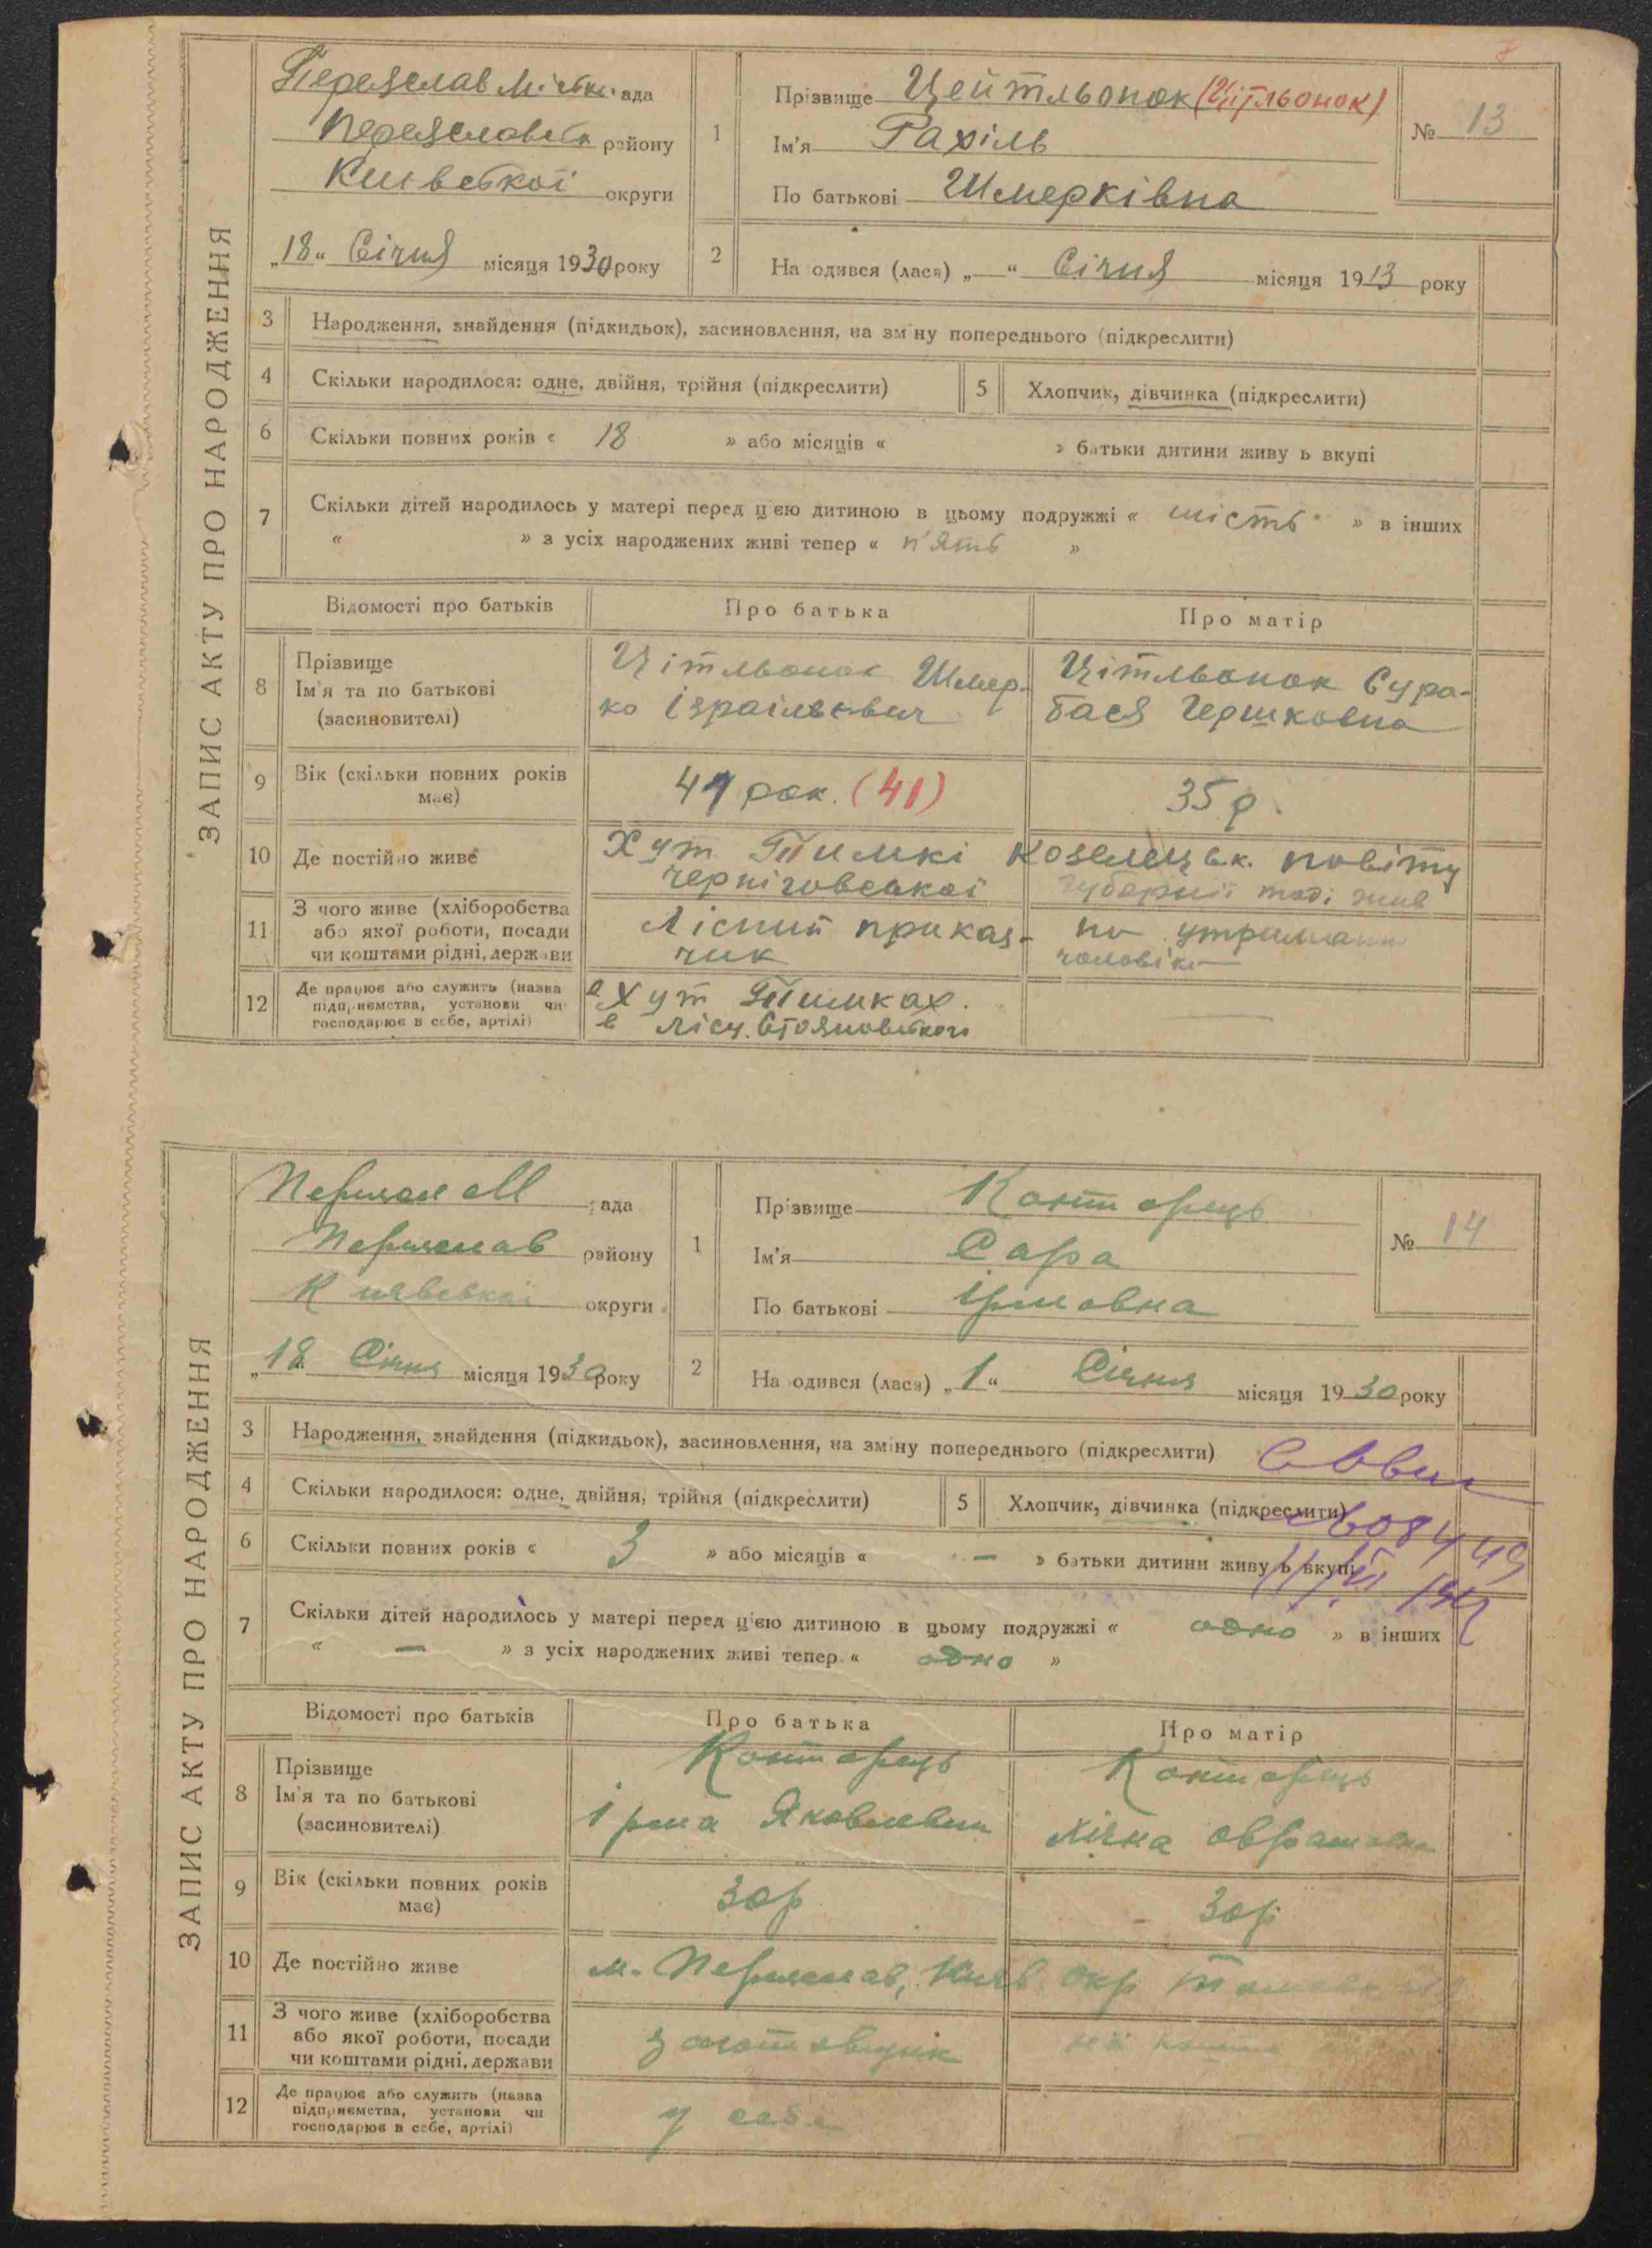 8
ЗАПИС АКТУ ПРО НАРОДЖЕННЯ
Переяслав Міськ. рада
Переяславськ району
Київської округи
„18“ Січня місяця 1930 року
1
Прізвище Цейтльонок (Цітльонок)
Ім'я Рахіль
По батькові Шмерківна
№ 13
2
На одився (лася) „—“ Січня місяця 1913 року
3 Народження, знайдення (підкидьок), засиновлення, на зміну попереднього (підкреслити)
4 Скільки народилося: одне, двійня, трійня (підкреслити)
5 Хлопчик, дівчинка (підкреслити)
6 Скільки повних років « 18 » або місяців « » батьки дитини живу ь вкупі
7 Скільки дітей народилось у матері перед цією дитиною в цьому подружжі « шість » в інших
« » з усіх народжених живі тепер « п'ять »
Відомості про батьків Про батька Про матір
8 Прізвище
Ім'я та по батькові
(засиновителі)
Цітльонок Шмер-
ко Ізраілевич
Цітльонок Сура-
Бася Гершковна
9 Вік (скільки повних років
має)
41 рок. (41)
35 р.
10 Де постійно живе
Хут Тимкі Козелецьк. повіту
Черніговської губернії тоді жив
11 З чого живе (хліборобства
або якої роботи, посади
чи коштами рідні, держави
Лісний приказ-
чик
на утриманні
чоловіка
12 Де працює або служить (назва
підприємства, установи чи
господарює в себе, артілі)
в Хут Тимках.
в лісн. Стояновського
ЗАПИС АКТУ ПРО НАРОДЖЕННЯ
Переяслав М рада
Переяслав району
Київської округи
„18 Січня місяця 1930 року
1
Прізвище Конторець
Ім'я Сара
По батькові Ірмовна
№ 14
2
На одився (лася) „1“ Січня місяця 1930 року
3 Народження, знайдення (підкидьок), засиновлення, на зміну попереднього (підкреслити)
4 Скільки народилося: одне, двійня, трійня (підкреслити)
5 Хлопчик, дівчинка (підкреслити)
6 Скільки повних років « 3 » або місяців « — » батьки дитини живу ь вкупі
7 Скільки дітей народилось у матері перед цією дитиною в цьому подружжі « одно » в інших
« — » з усіх народжених живі тепер « одно »
Відомості про батьків Про батька Про матір
8 Прізвище
Ім'я та по батькові
(засиновителі)
Конторець
Ірма Яковлевич
Конторець
Авраамовна
9 Вік (скільки повних років
має)
30 р
30 р
10 Де постійно живе
м. Переяслав, Київ. окр
11 З чого живе (хліборобства
або якої роботи, посади
чи коштами рідні, держави
заготовщик
12 Де працює або служить (назва
підприємства, установи чи
господарює в себе, артілі)
у себе